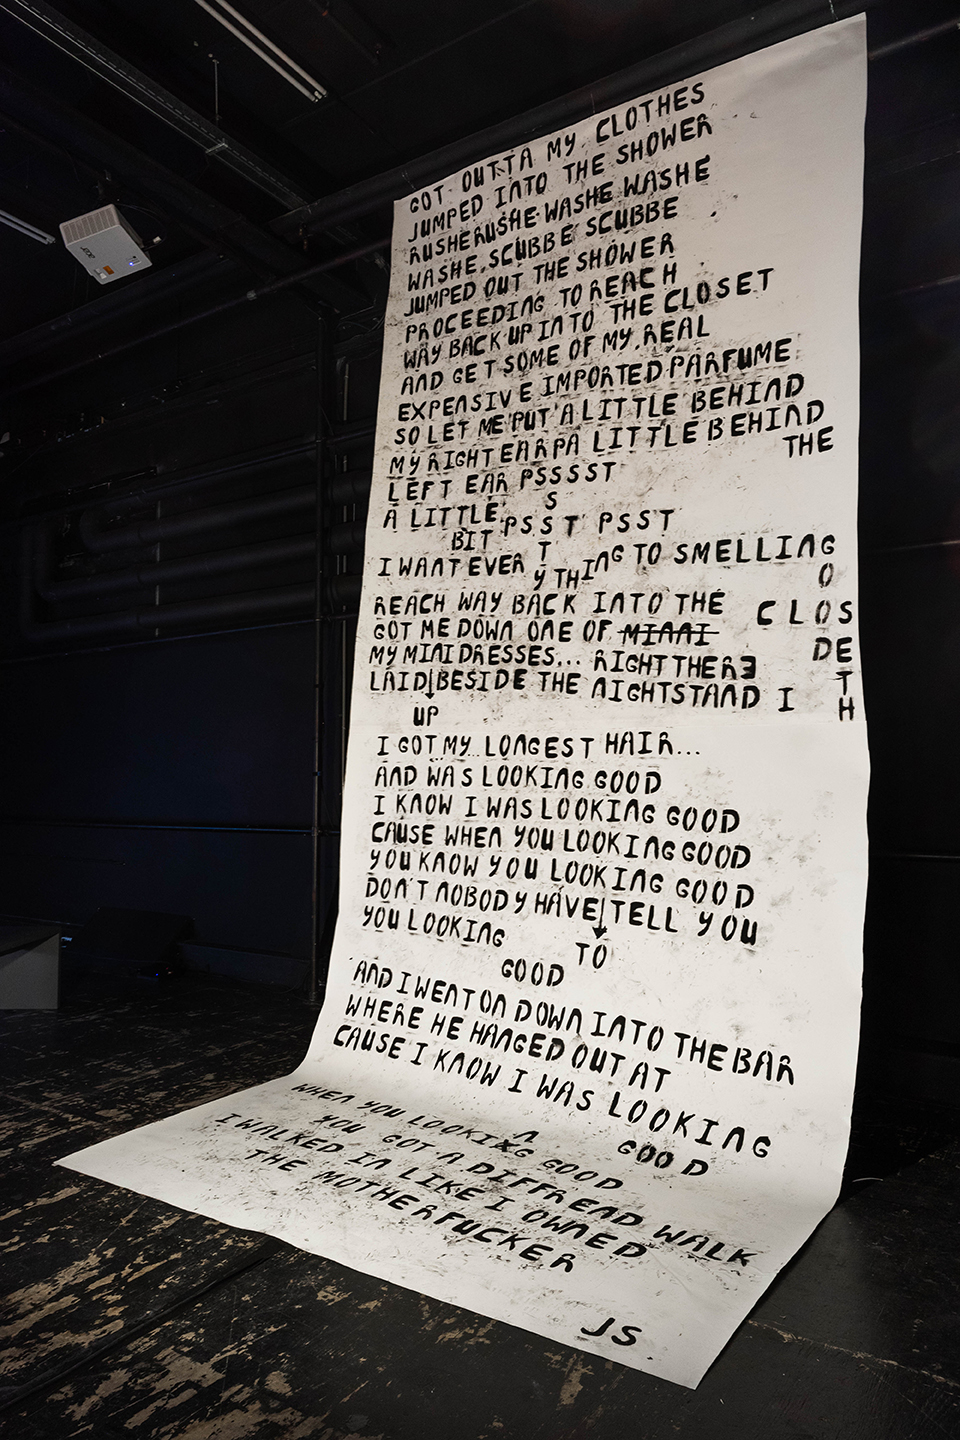 GOT OUTTA MY CLOTHES
JUMPED INTO THE SHOWER
RUSHERUSHE WASHE WASHE
WASHE, SCUBBE SCUBBE
JUMPED OUT THE SHOWER
PROCEEDING TO REACH
WAY BACK UP INTO THE CLOSET
AND GET SOME OF MY REAL
EXPENSIVE IMPORTED PARFUME
SO LET ME PUT A LITTLE BEHIND
MY RIGHT EAR PA LITTLE BEHIND
THE
LEFT EAR PSSSST
S
A LITTLE PSST PSST
BIT
T
I WANT EVERYTHING TO SMELLING
O
REACH WAY BACK INTO THE CLOS
GOT ME DOWN ONE OF MINNI
DE
MY MINI DRESSES... RIGHT THERE
T
LAID BESIDE THE NIGHTSTAND I
H
UP
I GOT MY LONGEST HAIR...
AND WAS LOOKING GOOD
I KNOW I WAS LOOKING GOOD
CAUSE WHEN YOU LOOKING GOOD
YOU KNOW YOU LOOKING GOOD
DON'T NOBODY HAVE TELL YOU
YOU LOOKING
TO
GOOD
AND I WENT ON DOWN INTO THE BAR
WHERE HE HANGED OUT AT
CAUSE I KNOW I WAS LOOKING
GOOD
WHEN YOU LOOKING GOOD
YOU GOT A DIFFREND WALK
I WALKED IN LIKE I OWNED
THE MOTHERFUCKER
JS
acer